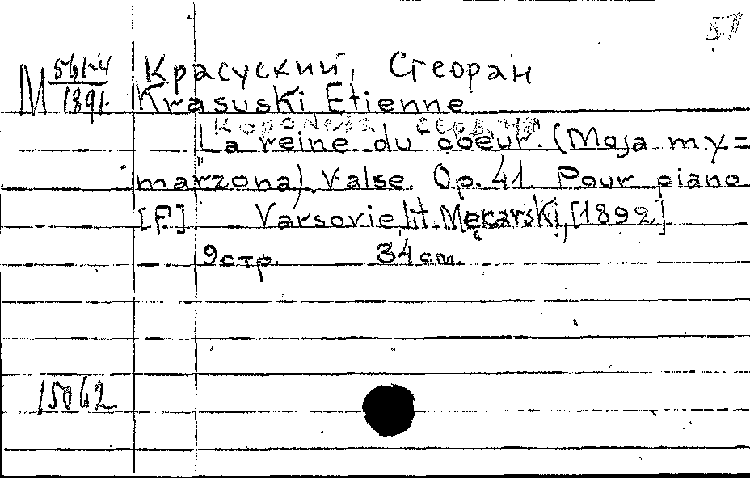 57
М 561-4 Красуский, Стеоран
1891 Krasuski Etienne
Королева сердца
La reine du coeur. (Moja my=
marzona). Valse. Op. 41. Pour piano
[F.] Varsovie, lit. Mękarski, [1892]
9 стр. 34 cm.
15062